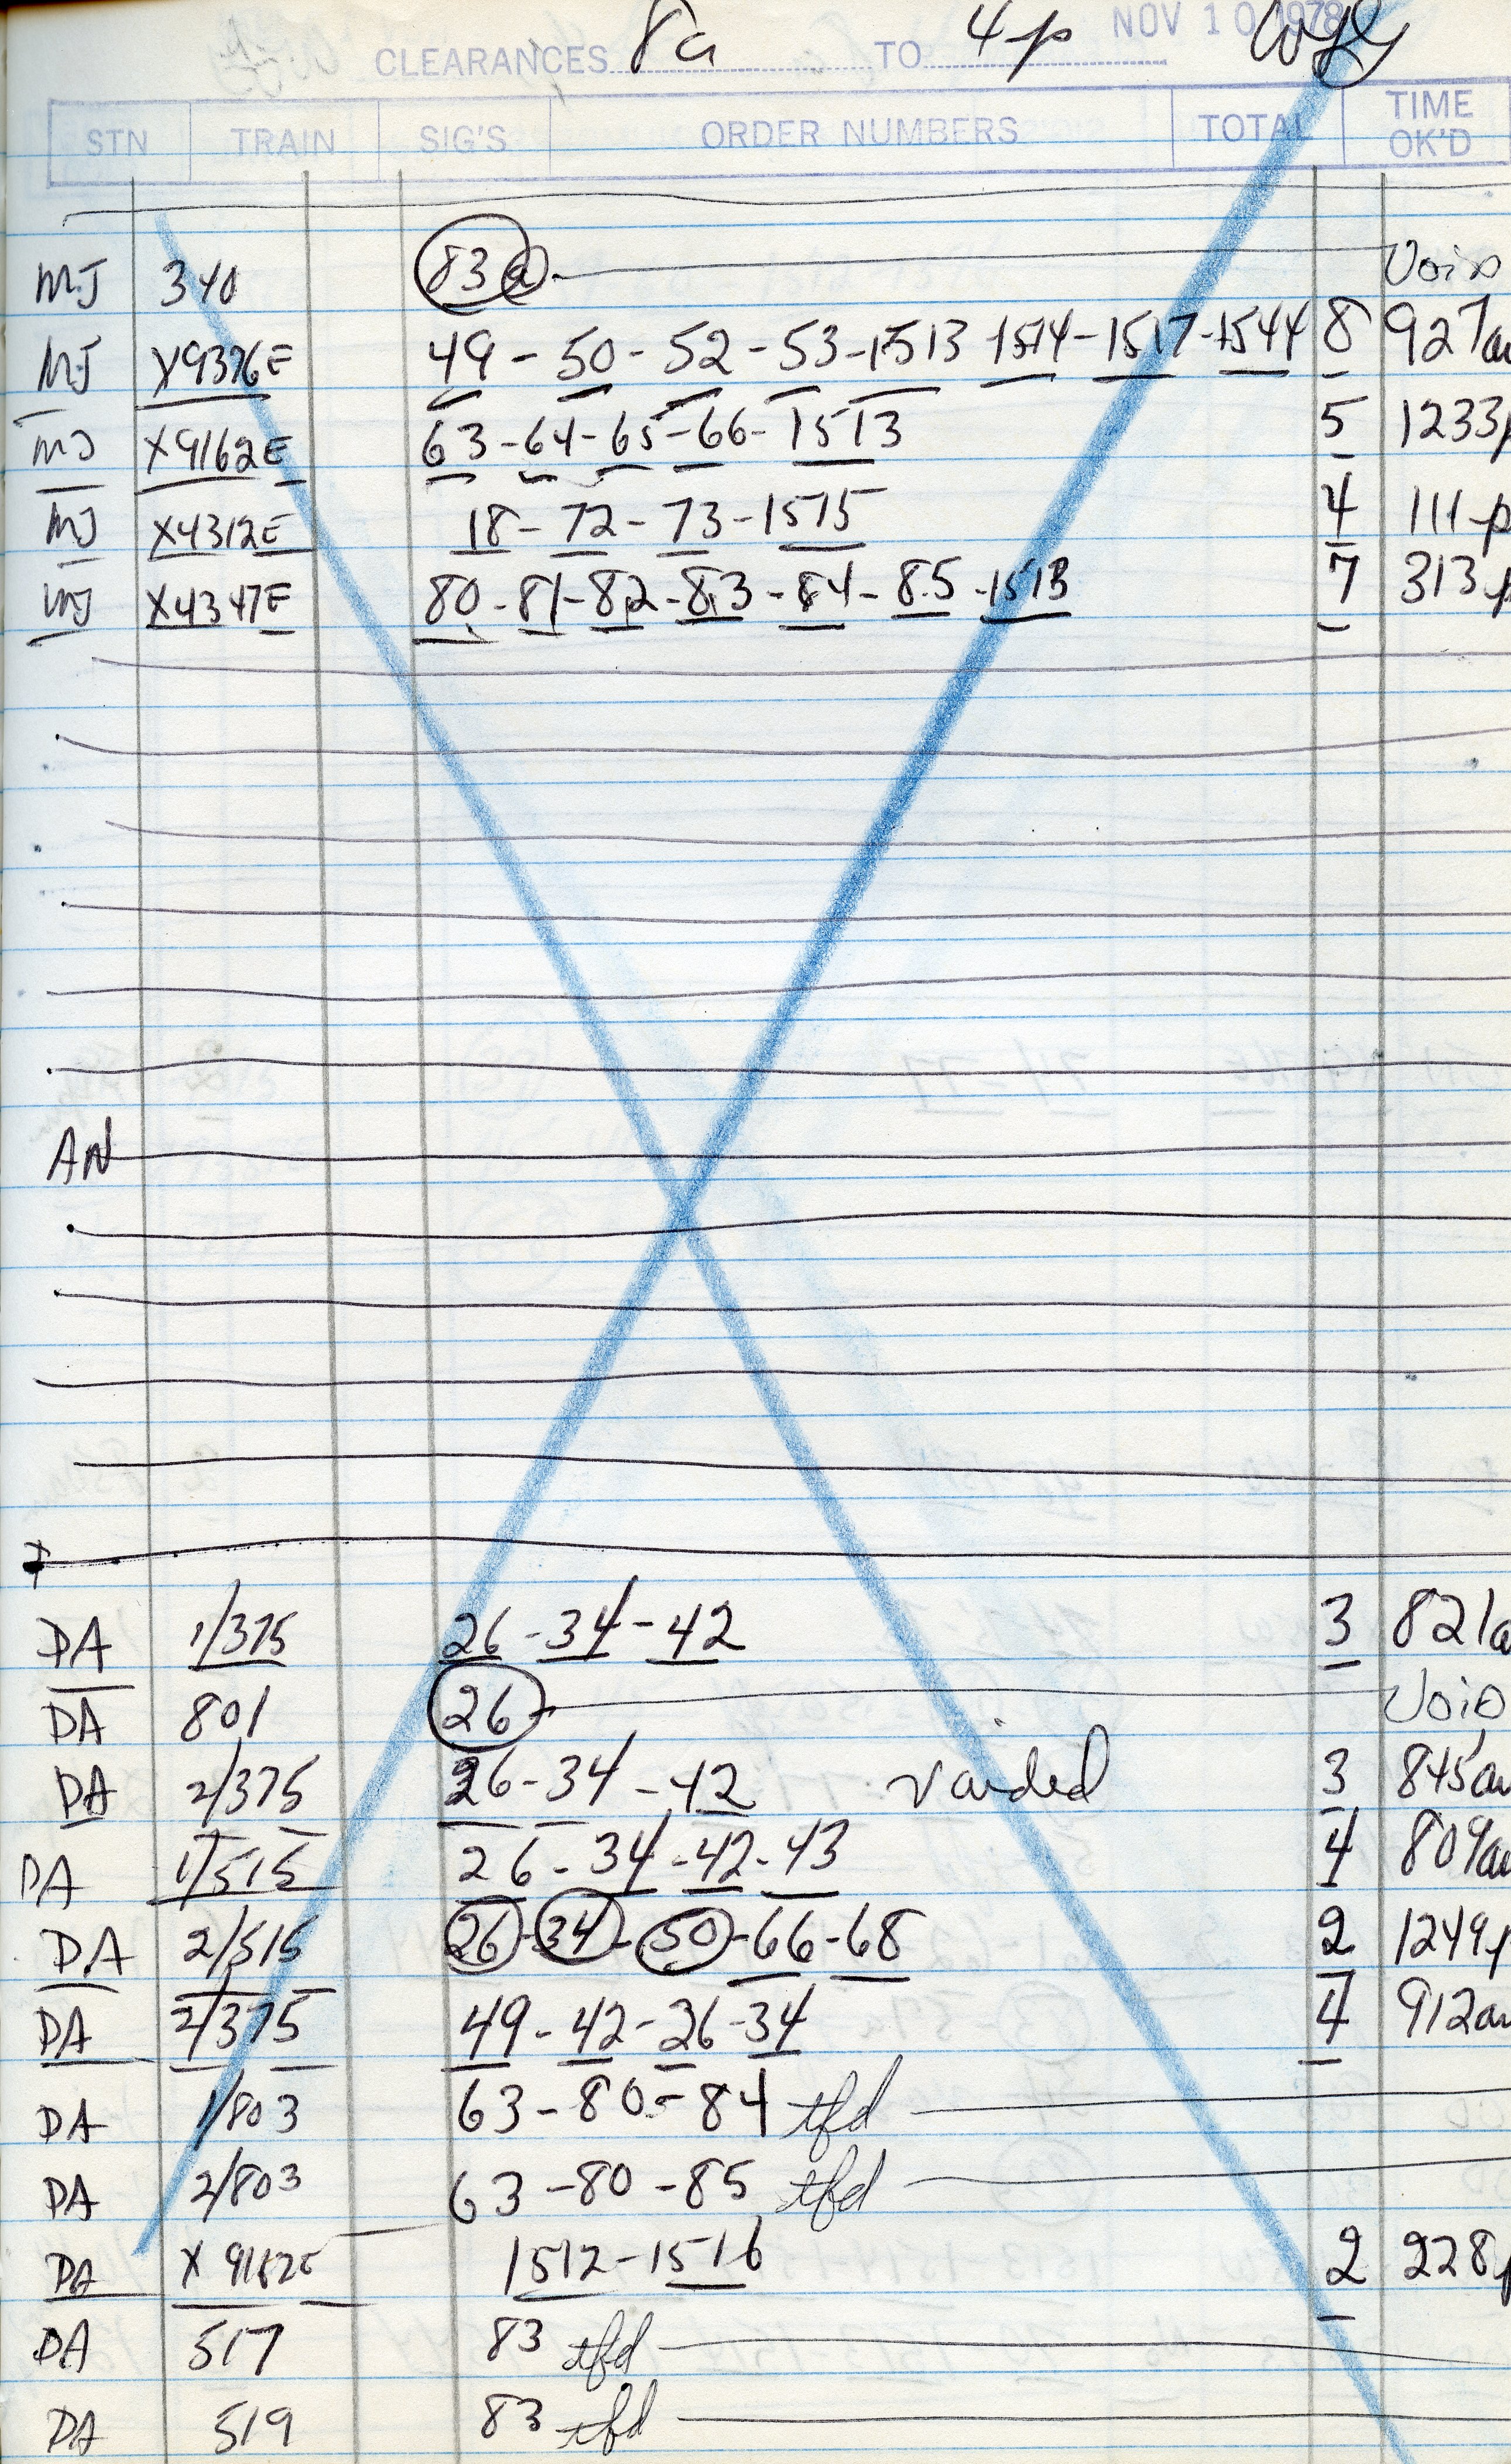 CLEARANCES 8a TO 4p NOV 10 1978
STN TRAIN SIG'S ORDER NUMBERS TOTAL TIME OK'D
MJ 340 83 Void
MJ X9376E 49 - 50 - 52 - 53 - 1513 - 1514 - 1517 - 1544 8 927a
MJ X9162E 63 - 64 - 65 - 66 - 1513 5 1233p
MJ X4312E 18 - 72 - 73 - 1515 4 111p
MJ X4347E 80 - 81 - 82 - 83 - 84 - 85 - 1513 7 313p
AN
DA 1/375 26 - 34 - 42 3 821a
DA 801 26 Void
DA 2/375 26 - 34 - 42 voided 3 845am
DA 1/515 26 - 34 - 42 - 43 4 809am
DA 2/515 26 - 34 - 50 - 66 - 68 2 1249p
DA 2/375 49 - 42 - 26 - 34 4 912am
DA 1/803 63 - 80 - 84 tfd
DA 2/803 63 - 80 - 85 tfd
DA 1512 - 1516 2 228p
DA 517 83 tfd
DA 519 83 tfd